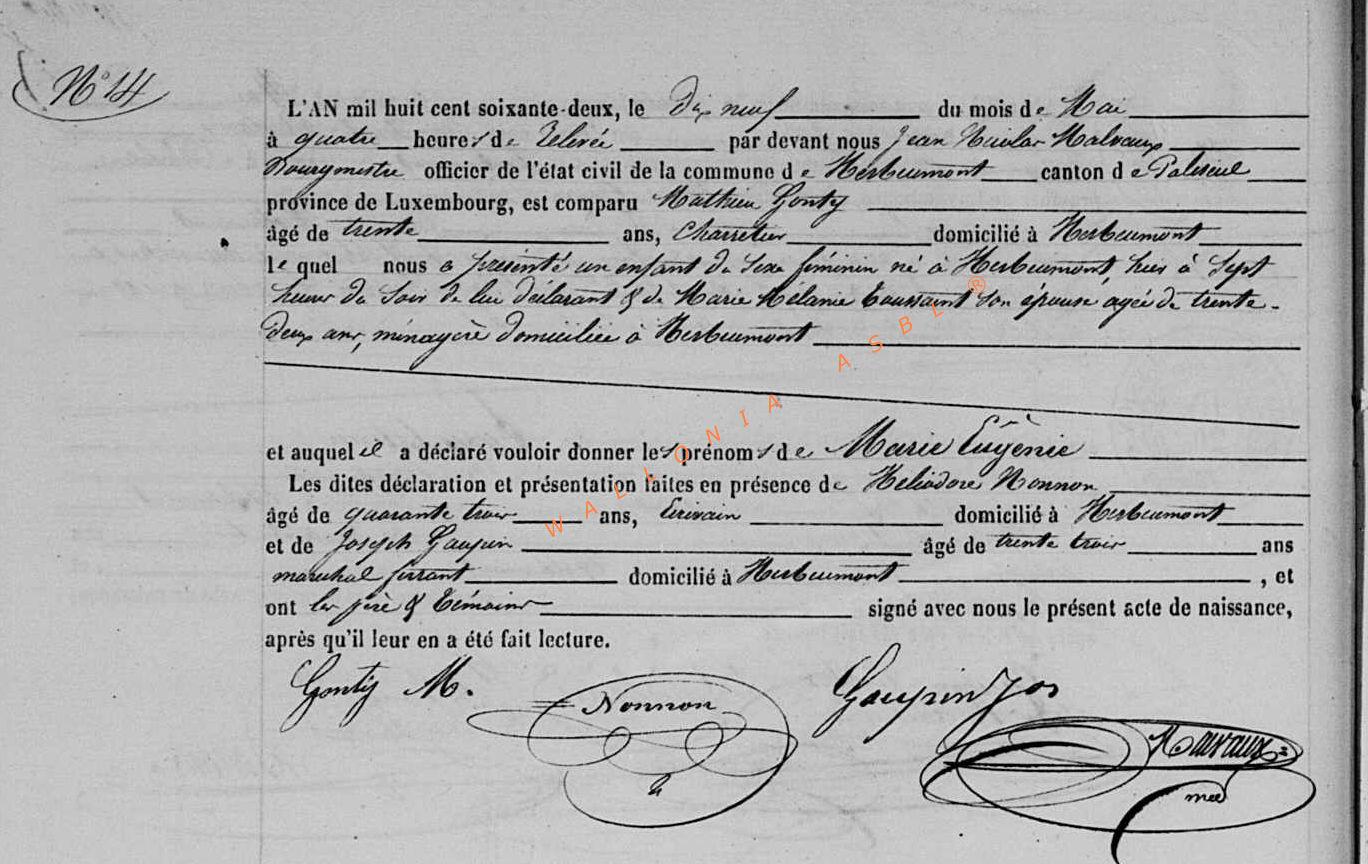 N° 14
L'AN mil huit cent soixante-deux, le dix neuf du mois de Mai
à quatre heures de relevée par devant nous Jean Nicolas Malvaux
Bourgmestre officier de l'état civil de la commune de Herbeumont canton de Paliseul
province de Luxembourg, est comparu Mathieu Gonty
âgé de trente ans, Charretier domicilié à Herbeumont
lequel nous a présenté un enfant du sexe féminin né à Herbeumont, hier à sept
heures du soir de lui déclarant & de Marie Mélanie Toussaint son épouse agée de trente-
deux ans, ménagère domiciliée à Herbeumont
et auquel il a déclaré vouloir donner les prénoms de Marie Eugènie
Les dites déclaration et présentation faites en présence de Heliodore Nonnon
âgé de quarante trois ans, Ecrivain domicilié à Herbeumont
et de Joseph Gaupin âgé de trente trois ans
marechal ferrant domicilié à Herbeumont, et
ont les père & témoins signé avec nous le présent acte de naissance,
après qu'il leur en a été fait lecture.
Gonty M. Nonnon Gaupin Jos
Malvaux
WALLONIA ASBL ®